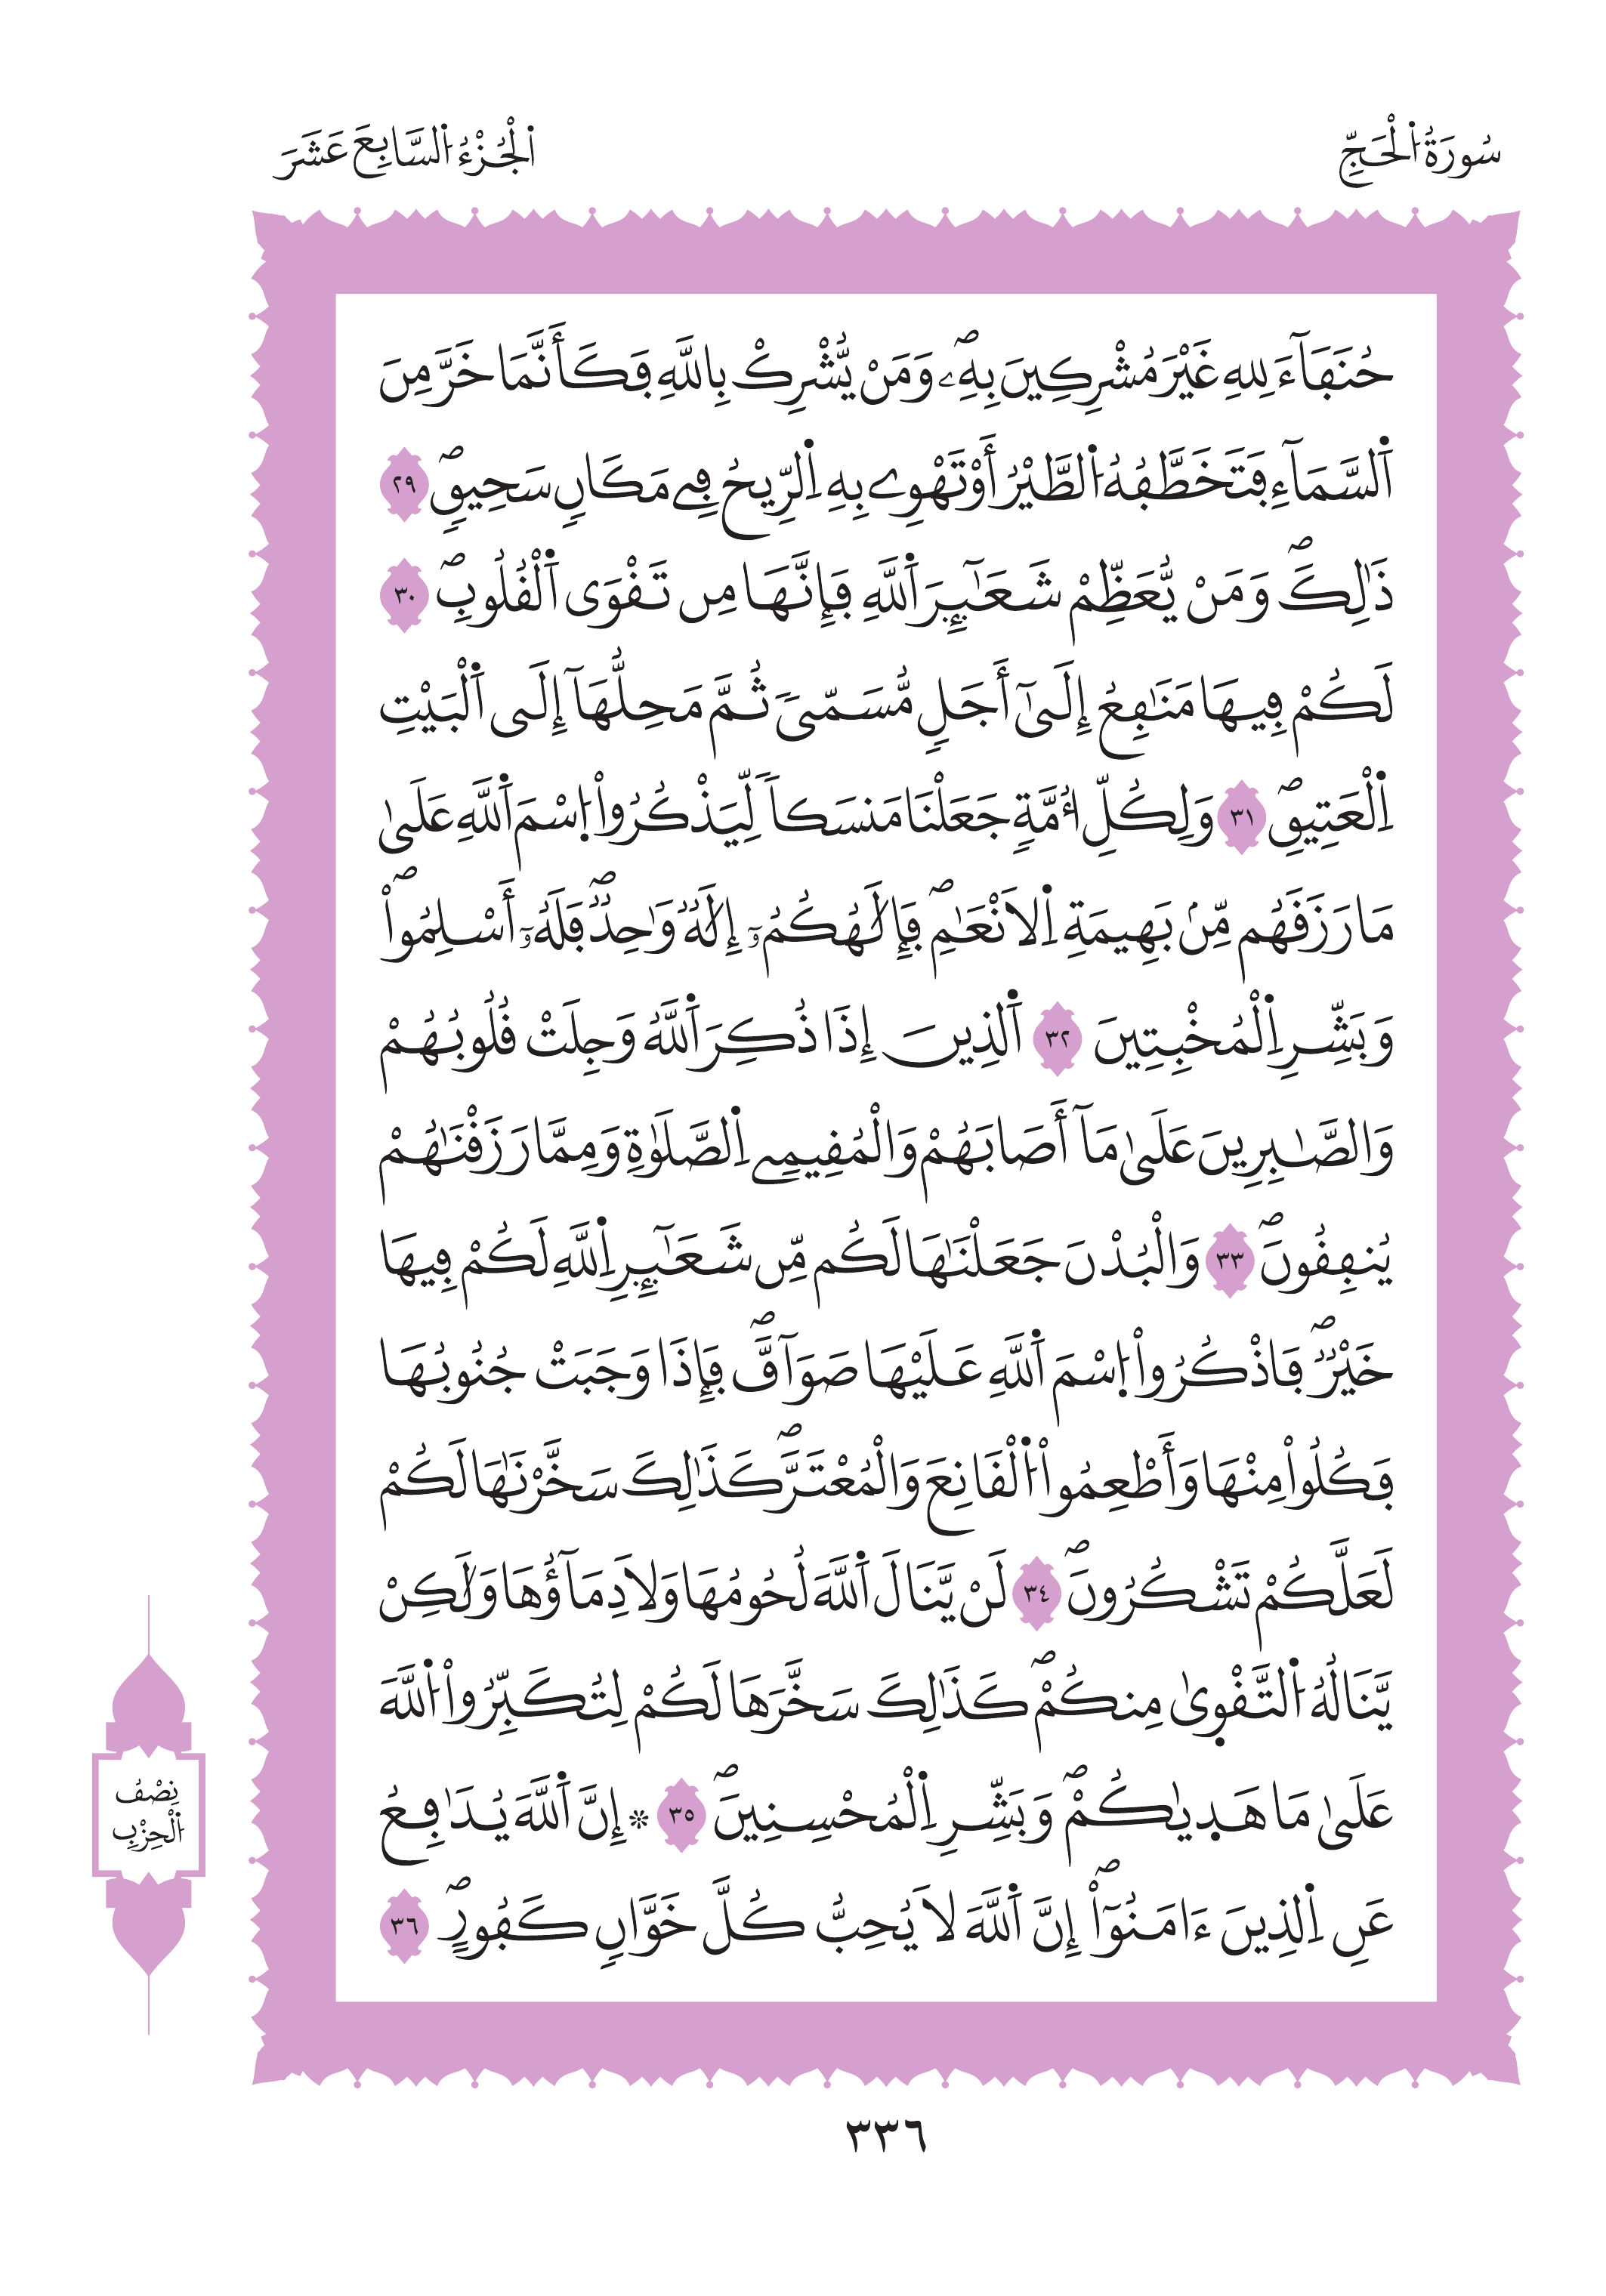 سُورَةُ اُ۬لْحَجِّ
اَ۬لْجُزْءُ اُ۬لسَّابِعَ عَشَرَ
حُنَفَآءَ لِلهِ غَيْرَ مُشْرِكِينَ بِهِۦۖ وَمَنْ يُّشْرِكْ بِاللَّهِ فَكَأَنَّمَا خَرَّ مِنَ
اَ۬لسَّمَآءِ فَتَخَطَّفُهُ اُ۬لطَّيْرُ أَوْ تَهْوِے بِهِ اِ۬لرِّيحُ فِے مَكَانٖ سَحِيقٖۖ ٢٩
ذَٰلِكَۖ وَمَنْ يُّعَظِّمْ شَعَٰٓئِرَ اَ۬للَّهِ فَإِنَّهَا مِن تَقْوَى اَ۬لْقُلُوبِۖ ٣٠
لَكُمْ فِيهَا مَنَٰفِعُ إِلَىٰٓ أَجَلٖ مُّسَمّىٗ ثُمَّ مَحِلُّهَآ إِلَى اَ۬لْبَيْتِ
اِ۬لْعَتِيقِۖ ٣١ وَلِكُلِّ أُمَّةٖ جَعَلْنَا مَنسَكاٗ لِّيَذْكُرُواْ اُ۪سْمَ اَ۬للَّهِ عَلَىٰ
مَا رَزَقَهُم مِّنۢ بَهِيمَةِ اِ۬لَانْعَٰمِۖ فَإِلَٰهُكُمُۥٓ إِلَٰهٞ وَٰحِدٞۖ فَلَهُۥٓ أَسْلِمُواْۖ
وَبَشِّرِ اِ۬لْمُخْبِتِينَ ٣٢ اَ۬لذِينَ إِذَا ذُكِرَ اَ۬للَّهُ وَجِلَتْ قُلُوبُهُمْ
وَالصَّٰبِرِينَ عَلَىٰ مَآ أَصَابَهُمْ وَالْمُقِيمِے اِ۬لصَّلَوٰةِ وَمِمَّا رَزَقْنَٰهُمْ
يُنفِقُونَۖ ٣٣ وَالْبُدْنَ جَعَلْنَٰهَا لَكُم مِّن شَعَٰٓئِرِ اِ۬للَّهِ لَكُمْ فِيهَا
خَيْرٞۖ فَاذْكُرُواْ اُ۪سْمَ اَ۬للَّهِ عَلَيْهَا صَوَآفَّۖ فَإِذَا وَجَبَتْ جُنُوبُهَا
فَكُلُواْ مِنْهَا وَأَطْعِمُواْ اُ۬لْقَانِعَ وَالْمُعْتَرَّۖ كَذَٰلِكَ سَخَّرْنَٰهَا لَكُمْ
لَعَلَّكُمْ تَشْكُرُونَۖ ٣٤ لَنْ يَّنَالَ اَ۬للَّهَ لُحُومُهَا وَلَا دِمَآؤُهَا وَلَٰكِنْ
يَّنَالُهُ اُ۬لتَّقْو۪ىٰ مِنكُمْۖ كَذَٰلِكَ سَخَّرَهَا لَكُمْ لِتُكَبِّرُواْ اُ۬للَّهَ
عَلَىٰ مَا هَد۪يٰكُمْۖ وَبَشِّرِ اِ۬لْمُحْسِنِينَۖ ٣٥ ❊ إِنَّ اَ۬للَّهَ يُدَٰفِعُ
عَنِ اِ۬لذِينَ ءَامَنُوٓاْۖ إِنَّ اَ۬للَّهَ لَا يُحِبُّ كُلَّ خَوَّانٖ كَفُورٍۖ ٣٦
نِصْفُ
اُ۬لْحِزْبِ
٣٣٦